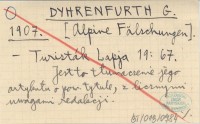 DYHRENFURTH G.
1907. [Alpine Fälschungen].
— Turisták Lapja 19: 67.
Jest to tłumaczenie jego
artykułu o pow. tytule, z licznymi
uwagami redakcji.